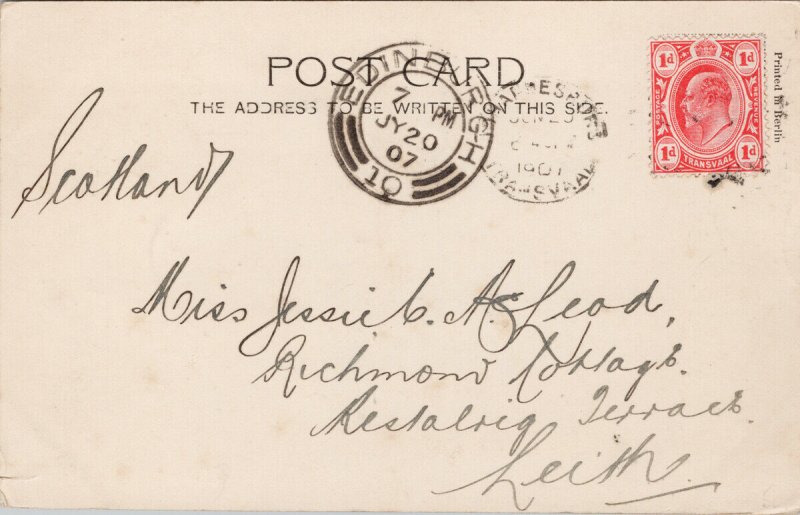 POST CARD
THE ADDRESS TO BE WRITTEN ON THIS SIDE.
EDINBURGH
7 PM
JY 20
07
10
1907
TRANSVAAL
1d 1d
1d TRANSVAAL 1d
Printed in Berlin
Scotland
Miss Jessie C. McLeod,
Richmond Cottage.
Restalrig Terrace.
Leith.